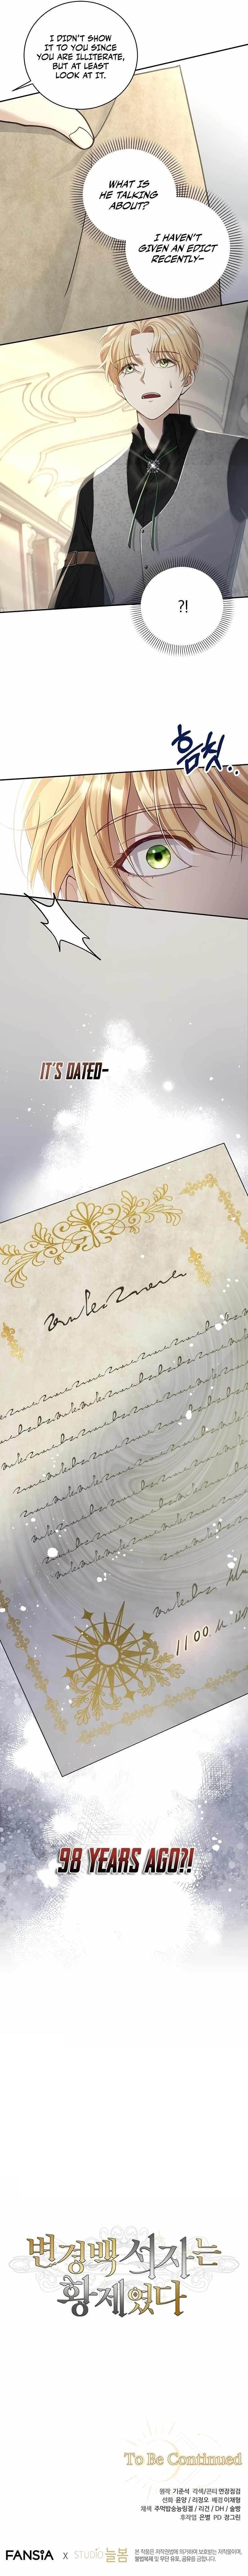 I DIDN'T SHOW
IT TO YOU SINCE
YOU ARE ILLITERATE,
BUT AT LEAST
LOOK AT IT.
WHAT IS
HE TALKING
ABOUT?
I HAVEN'T
GIVEN AN EDICT
RECENTLY-
?!
흠칫..
IT'S DATED-
1100.
98 YEARS AGO?!
변경백 서자는
황제였다
To Be Continued
원작 기준석 각색/콘티 연장점검
선화 윤양 / 리정오 배경 이재형
채색 주먹밥숭늉림겔 / 리건 / DH / 솔빵
후제업 은별 PD 장그린
FANSIA X STUDIO 늘봄
본 작품은 저작권법에 의거하여 보호받는 저작물이며,
불법복제 및 무단 유포, 공유를 금합니다.